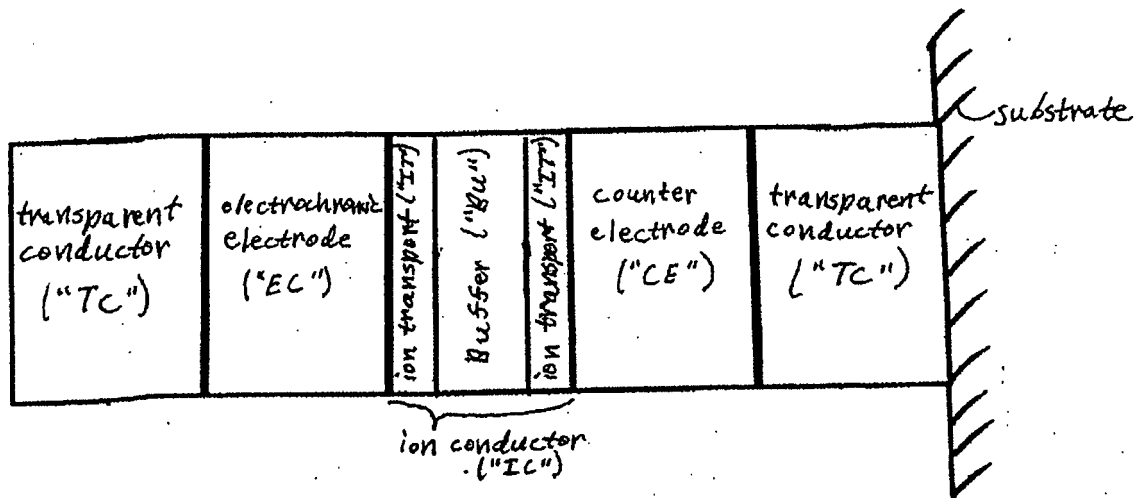 substrate
transparent
conductor
("TC")
electrochromic
electrode
("EC")
ion transport ("IT")
Buffer ("Bu")
ion transport ("IT")
counter
electrode
("CE")
transparent
conductor
("TC")
ion conductor
("IC")